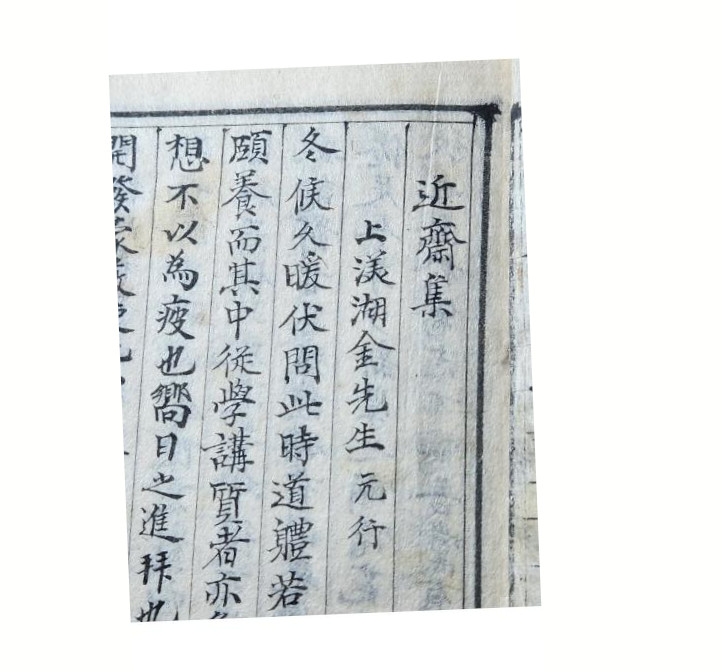 近齋集
上渼湖金先生 元行
冬候久暖伏問此時道體若
頤養而其中從學講質者亦
想不以為疲也嚮日之進拜也
開發